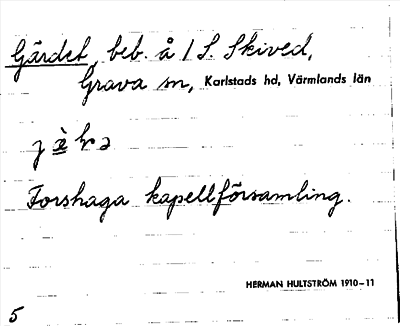 Gärdet, beb. å 1 S. Skived,
Grava sn, Karlstads hd, Värmlands län
Forshaga kapellförsamling.
HERMAN HULTSTRÖM 1910–11
5